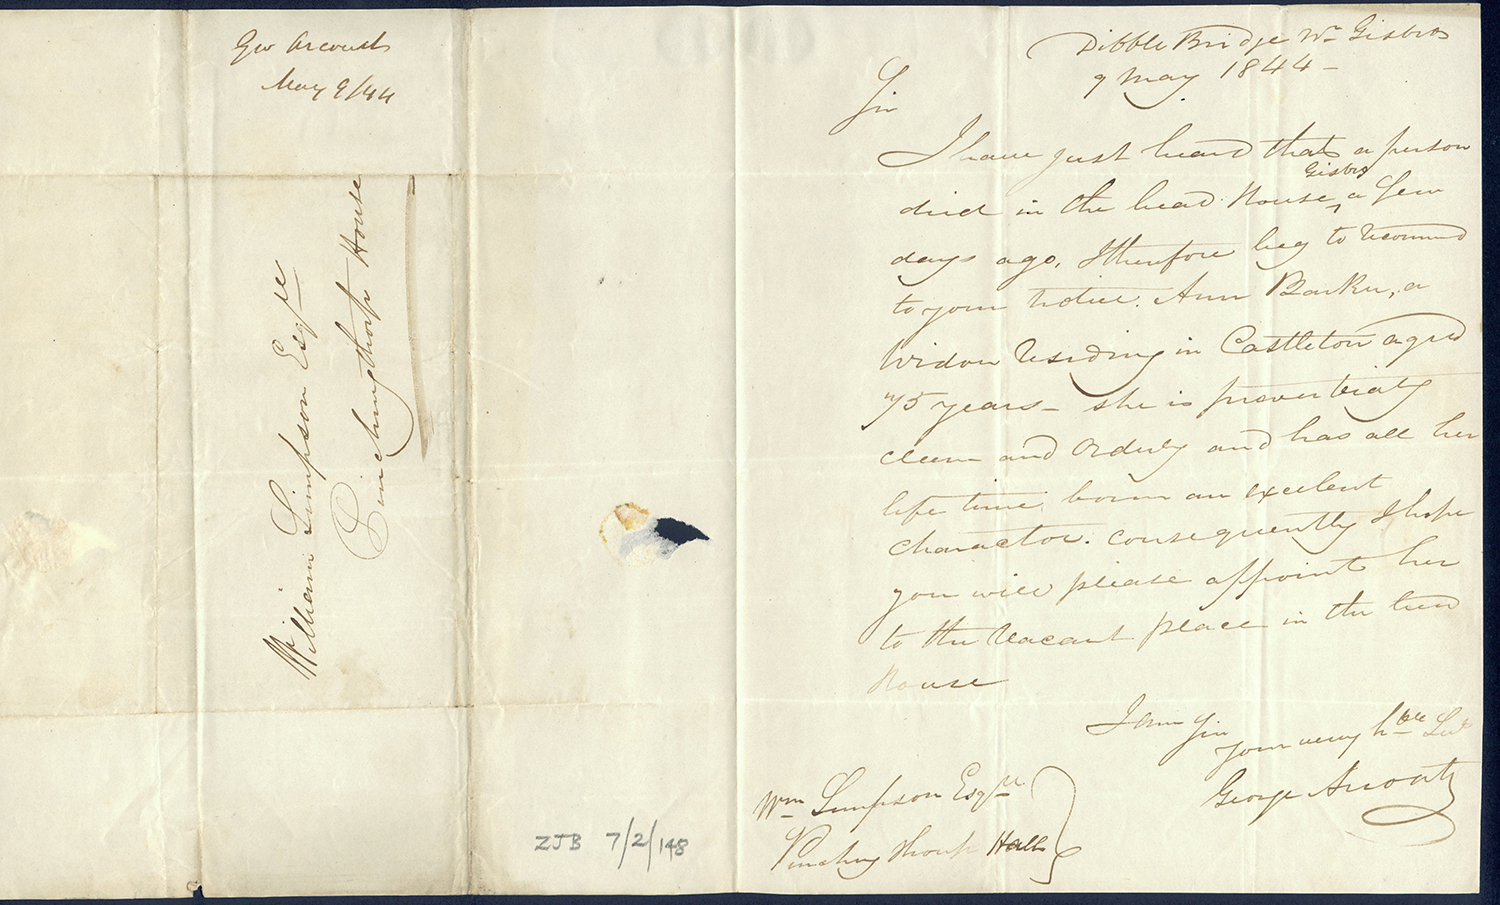 Geo Arcoust
May 9/44
William Simpson Esqre
Pinchingthorp House
Dibble Bridge Nr Gisbro
9 May 1844 -
Sir
I have just heard that a person
Gisbro
died in the head House, a few
days ago, I therefore beg to recomend
to your notice. Ann Barker, a
Widow residing in Castleton aged
75 years - she is proverbialy
clean and orderly and has all her
life time born an excelent
charactor. consequently I hope
you will please appoint her
to the vacant place in the
House
I am Sir
Your very hble Svt
George
Wm Simpson Esqre
Pinchingthorp Hall
ZJB 7/2/148